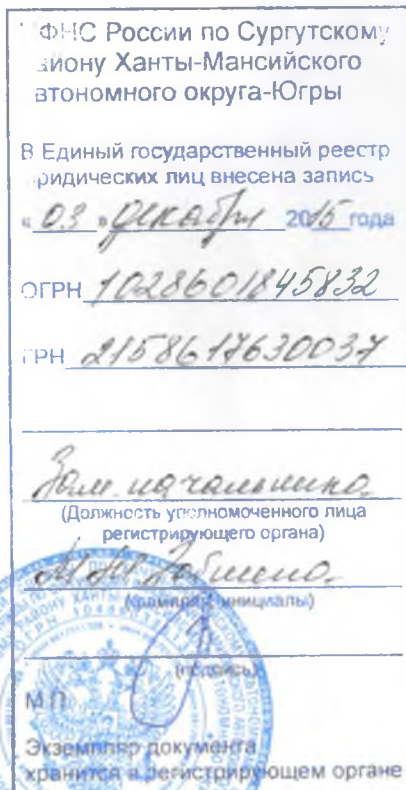 ФНС России по Сургутскому
айону Ханты-Мансийского
втономного округа-Югры
В Единый государственный реестр
ридических лиц внесена запись
« 03 » декабря 2015 года
ОГРН 1028601845832
ГРН 2158617630037
Зам. начальника
(Должность уполномоченного лица
регистрирующего органа)
(фамилия, инициалы)
(подпись)
М.П.
Экземпляр документа
хранится в регистрирующем органе